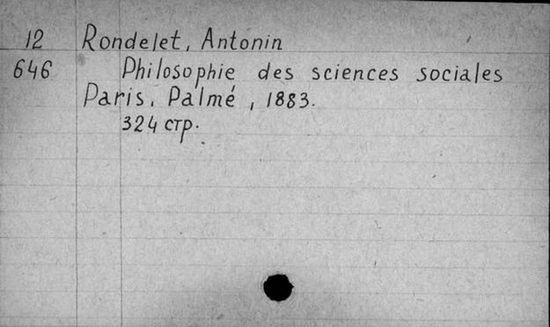 12 Rondelet, Antonin
646 Philosophie des sciences sociales
Paris, Palmé, 1883.
324 стр.